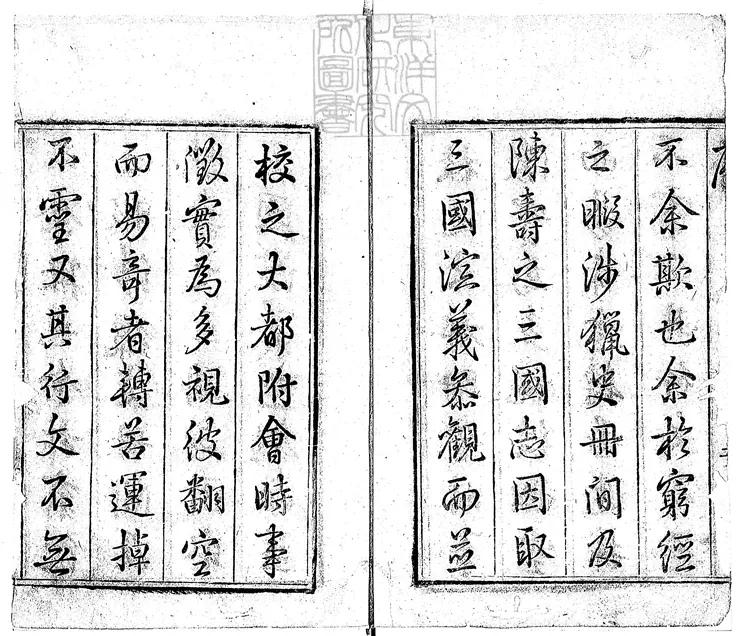 東洋文
化研究
所圖書
不余欺也余於窮經
之暇涉獵史冊間及
陳壽之三國志因取
三國演義叅觀而並
校之大都附會時事
徵實為多視彼翻空
而易竒者轉苦運掉
不靈又其行文不無